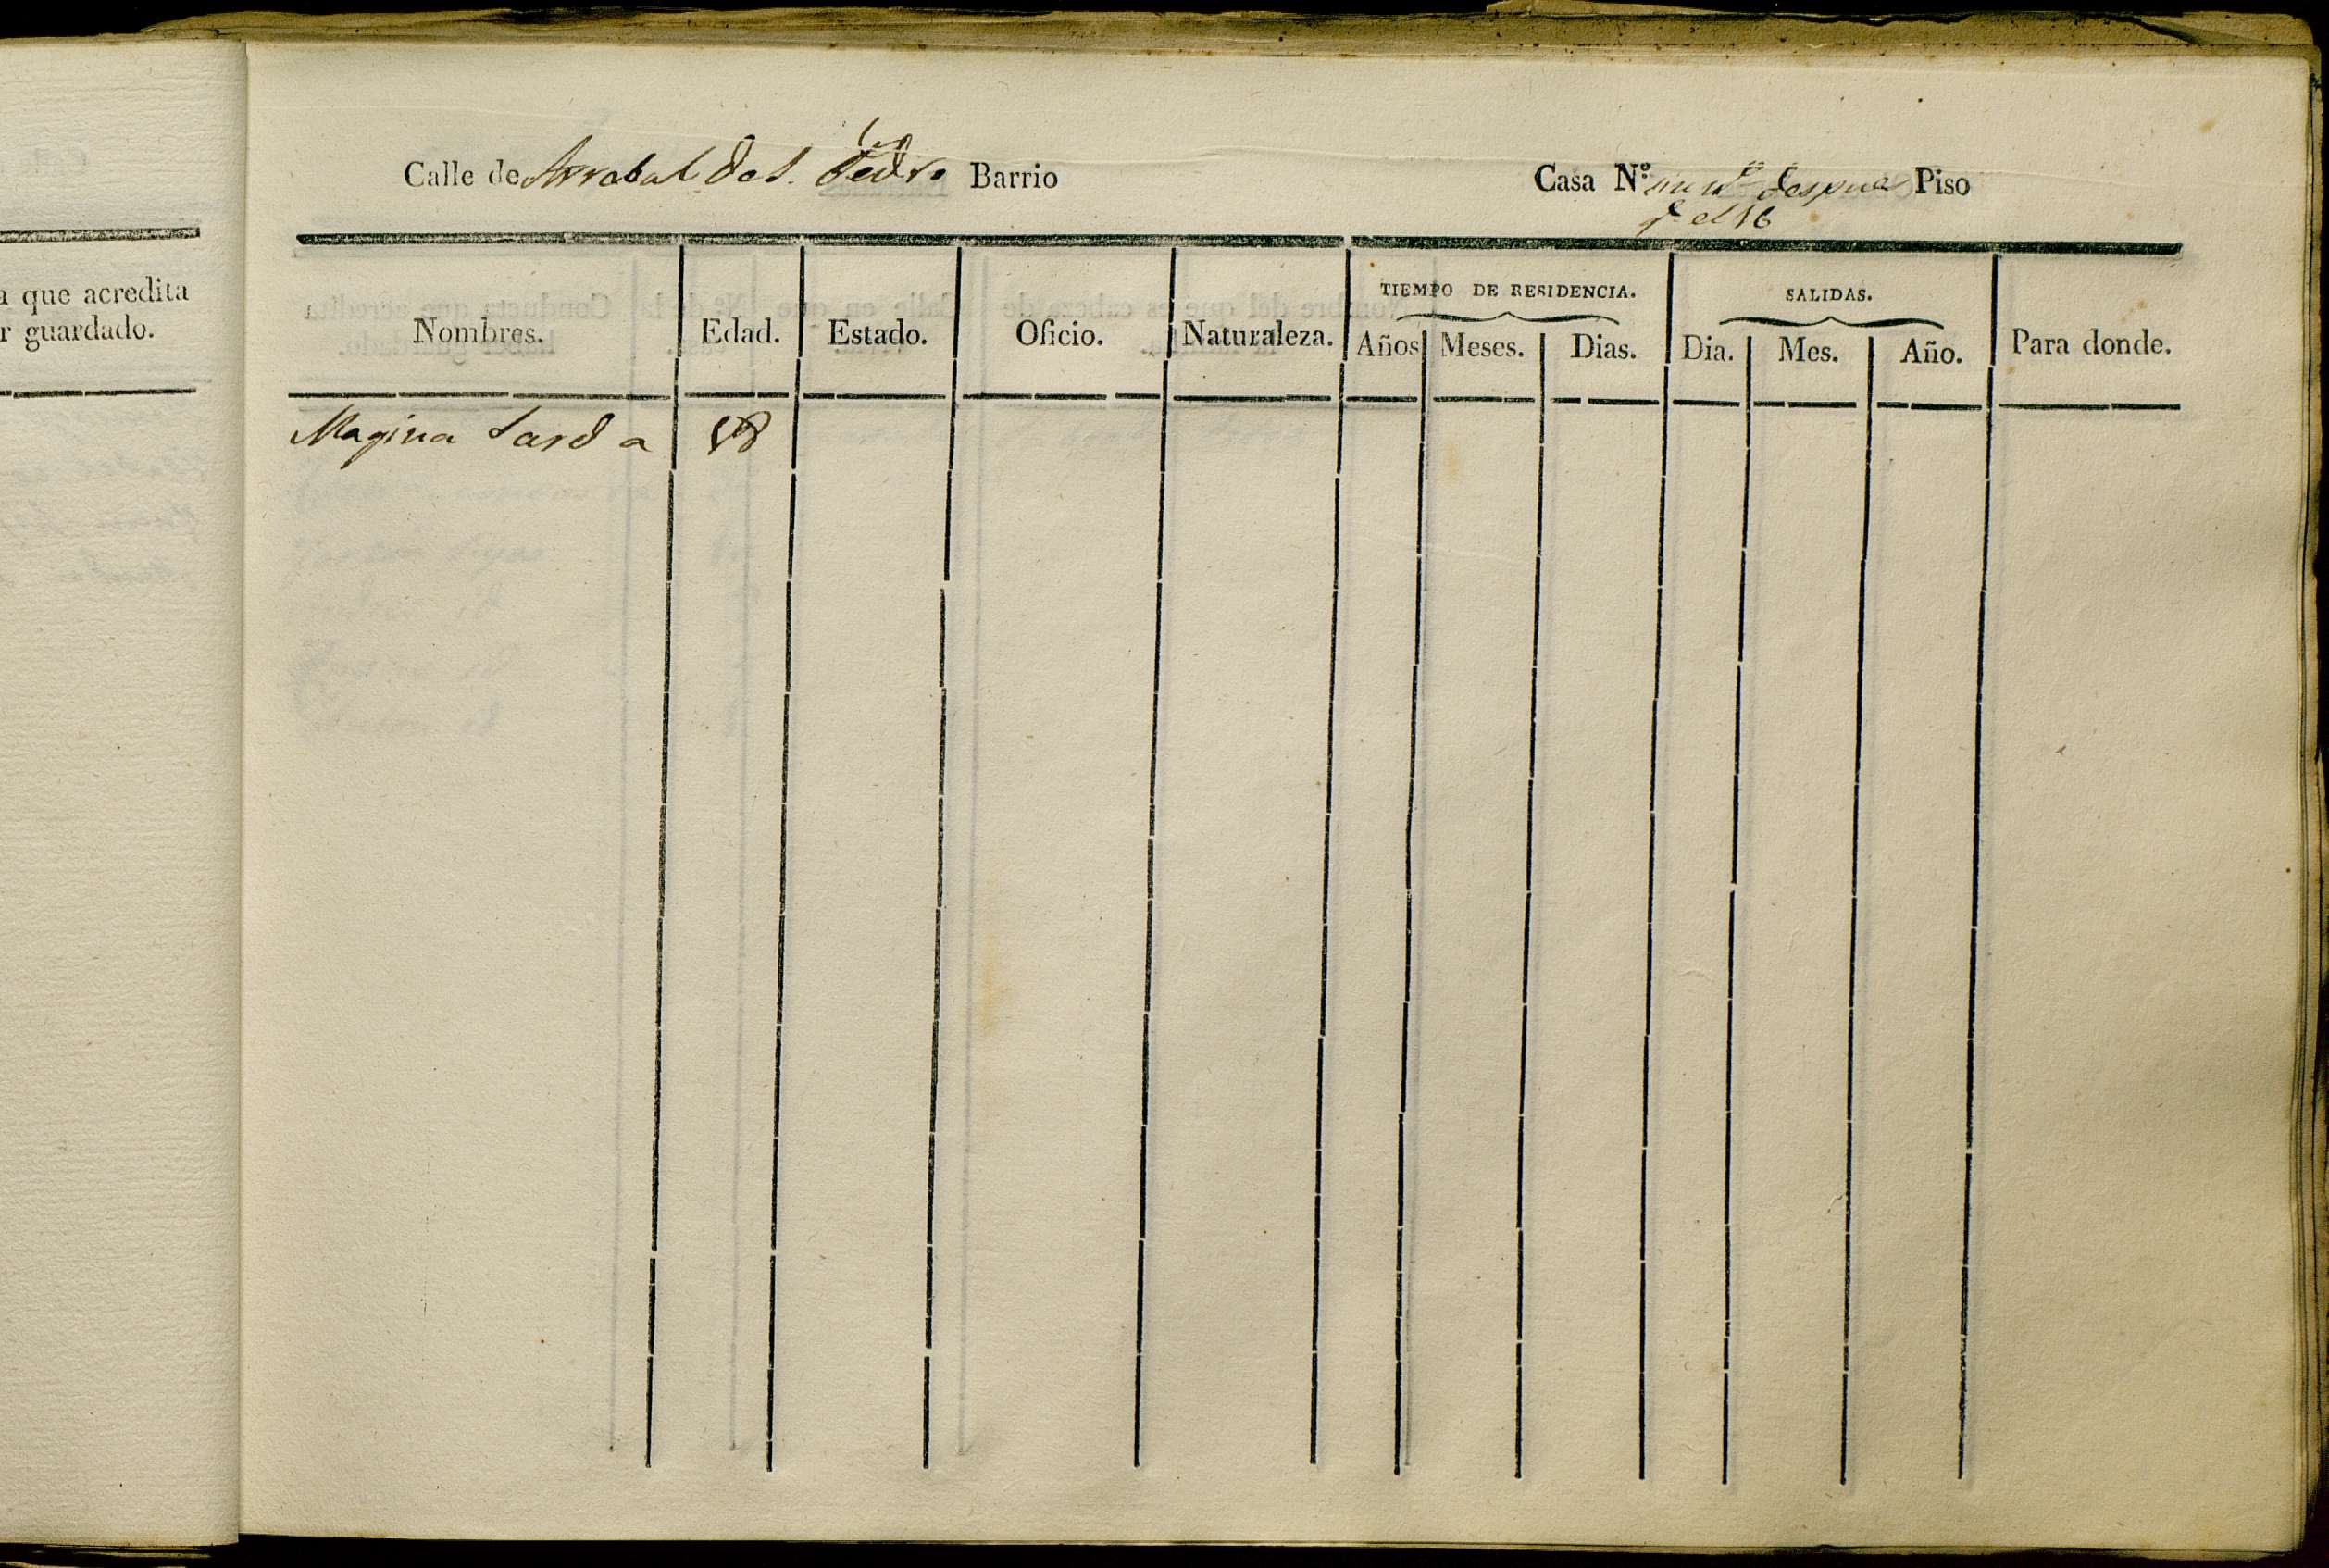 a que acredita
r guardado.
Calle de Arrabal de S. Pedro Barrio
Casa N.º sin nº despues Piso
el 16
TIEMPO DE RESIDENCIA.
SALIDAS.
Nombres. Edad. Estado. Oficio. Naturaleza. Años Meses. Dias. Dia. Mes. Año. Para donde.
Magina Sarda